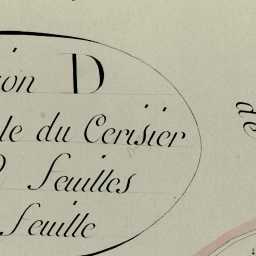 ion D
le du Cerisier
feuilles
feuille
de